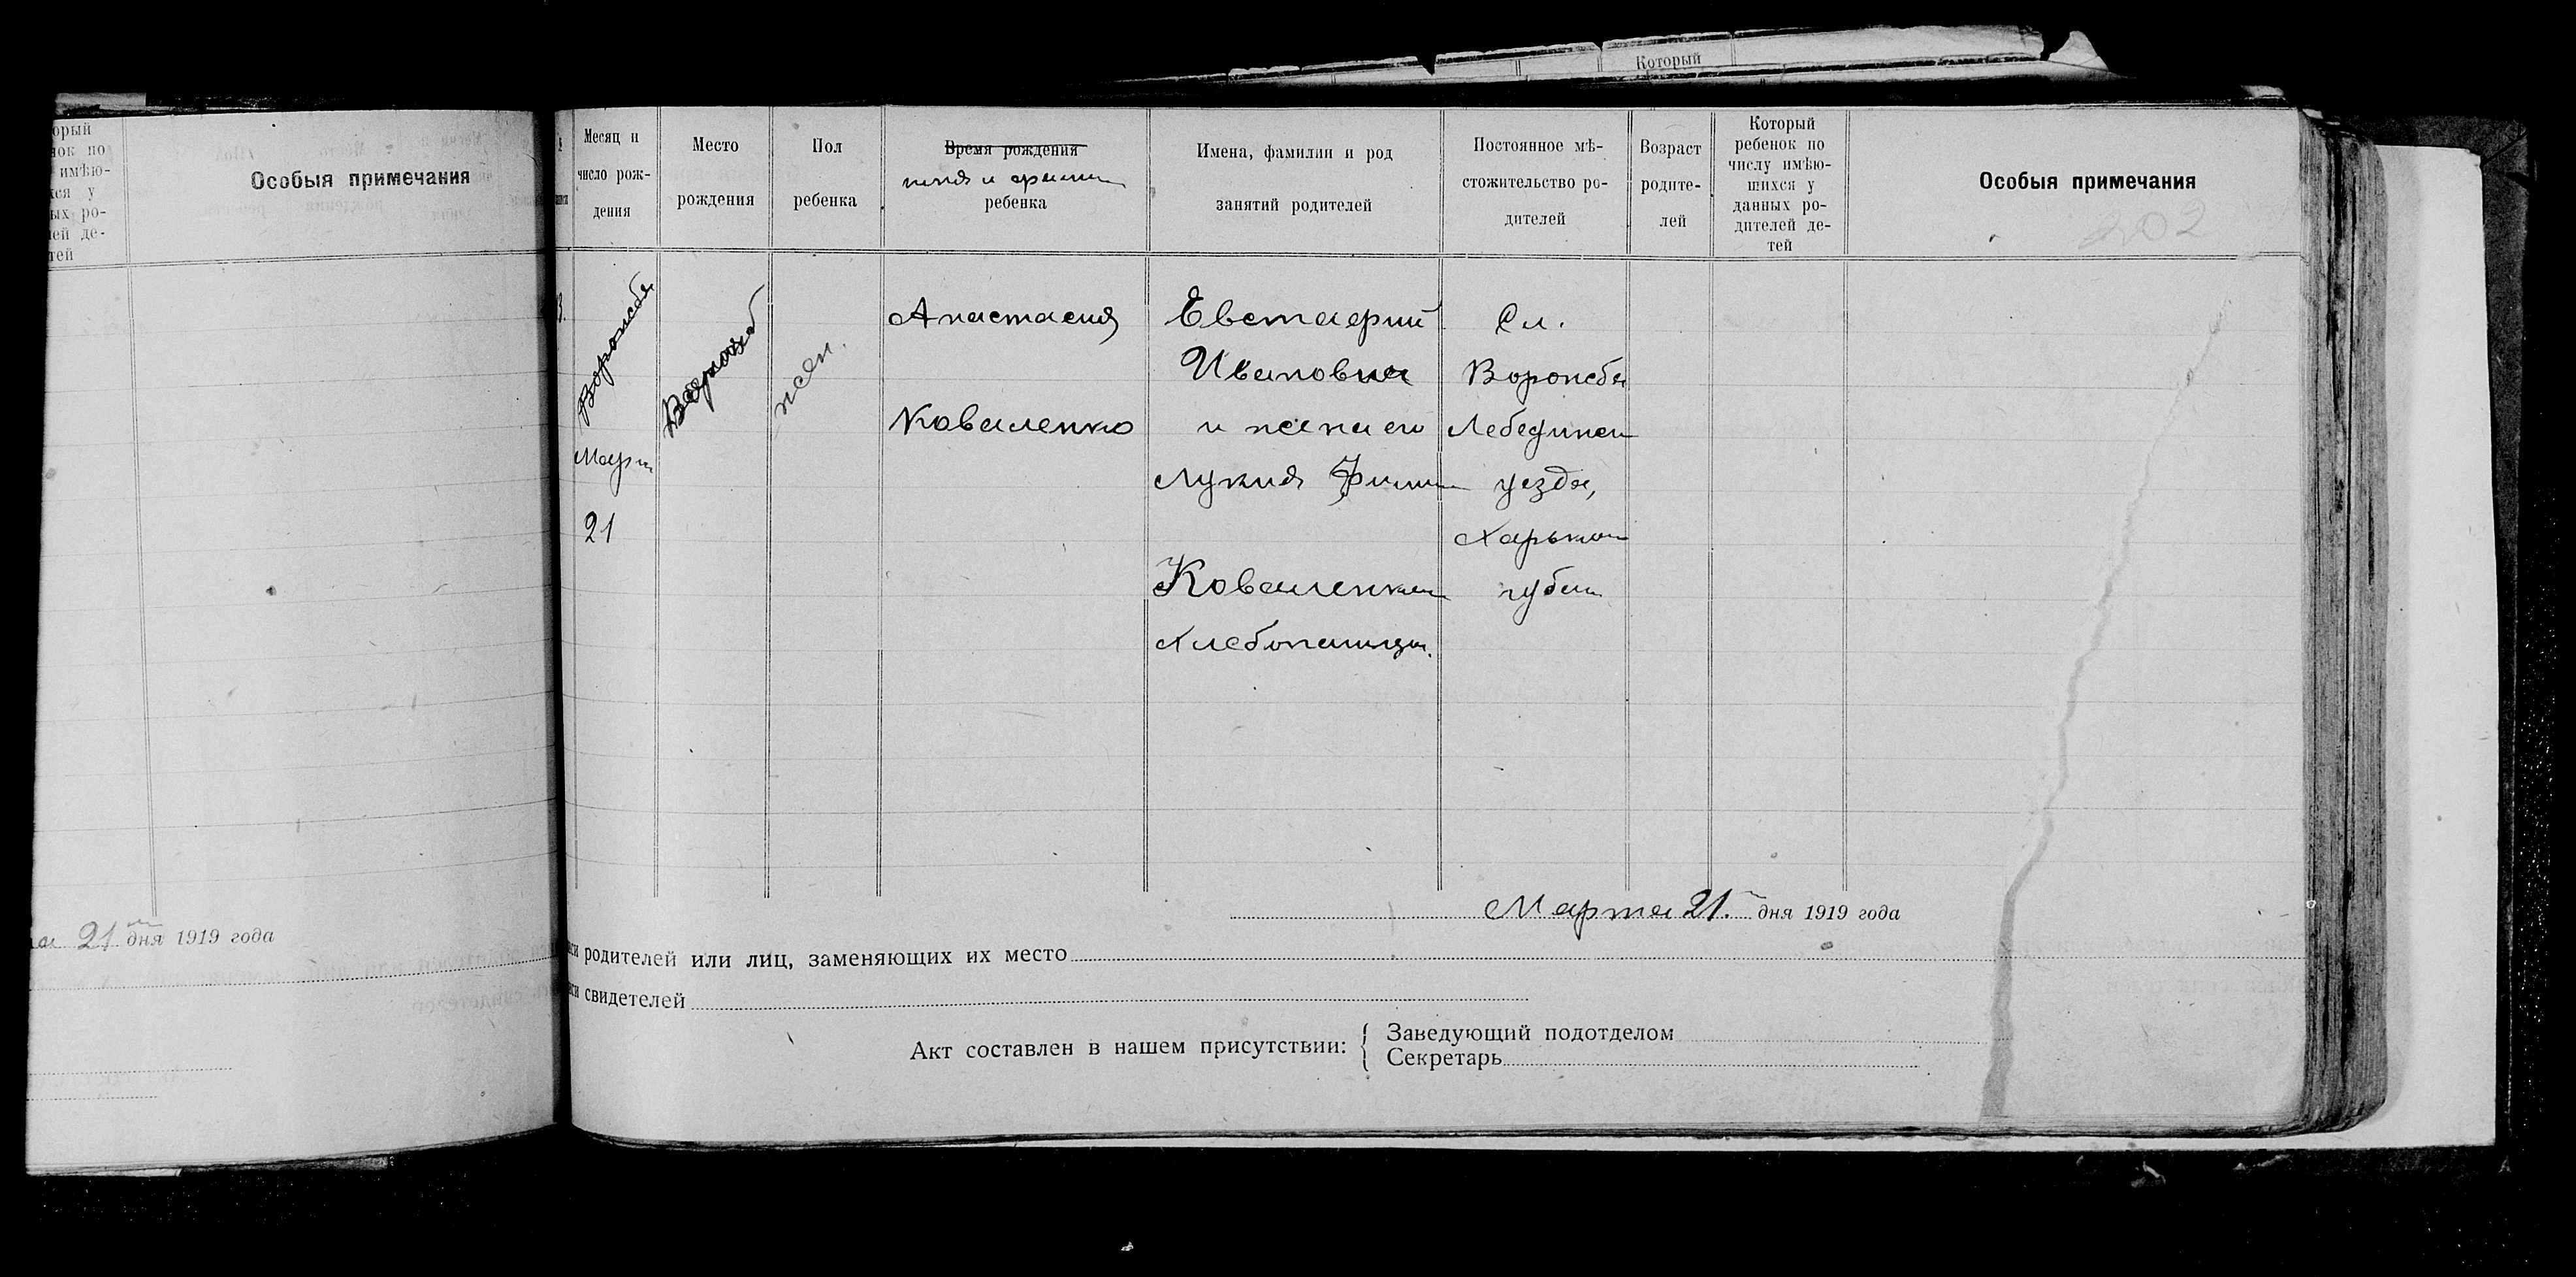 Который
орый
нок по
имѣю-
хся у
ых ро-
лей де-
тей
Особыя примечания
а 21 дня 1919 года
Месяц и
число рож-
дения
Место
рождения
Пол
ребенка
Время рождения
имя и фамил
ребенка
Имена, фамилии и род
занятий родителей
Постоянное мѣ-
стожительство ро-
дителей
Возраст
родите-
лей
Который
ребенок по
числу имѣю-
шихся у
данных ро-
дителей де-
тей
Особыя примечания
202
Ворожба
Март
21
жен.
Анастасия
Коваленко
Евстафий
Иванович
и жена его
Лукия
Коваленко
Хлебопашцы.
Сл.
Ворожба
Лебединск
уезда,
Харьков
губ
Марта 21. дня 1919 года
родителей или лиц, заменяющих их место
свидетелей
Акт составлен в нашем присутствии:
Заведующий подотделом
Секретарь